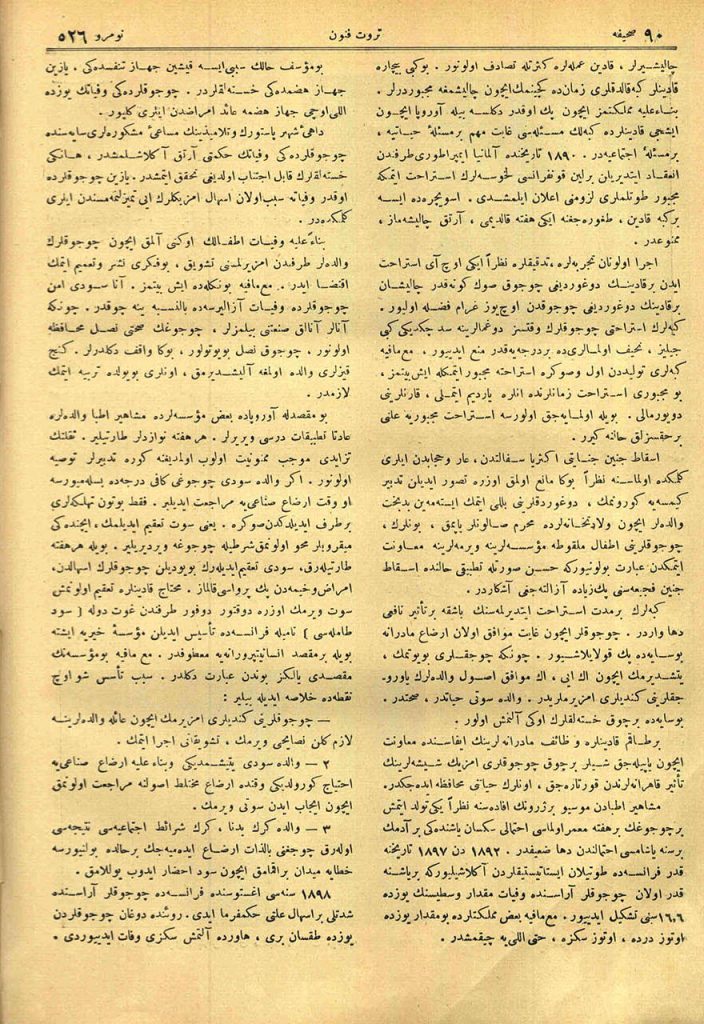 ٩٠ صحیفه
ثروت فنون
نومرو ٥٢٦
چالیشیرلر ، قادین عمله‌لره کثرتله تصادف اولونور . بوکبی بیچاره
قادینلر کبه‌قالدقلری زمان‌ده کچینمك‌ایچون چالیشمغه مجبوردرلر .
بناءعلیه مملکتمز ایچون پك اوقدر دکلسه بیله آوروپا ایچون
ایشجی قادینلرده کبه‌لك مسئله‌سی غایت مهم برمسئلهٔ حیاتیه ،
برمسئلهٔ اجتماعیه‌در . ١٨٩٠ تاریخنده آلمانیا ایمپراطوری طرفندن
انعقاد ایتدیریلن برلین قونفرانسی لخوسه‌لرك استراحت ایتمکه
مجبور طوتلملری لزومنی اعلان ایلمشدی . اسویچره‌ده ایسه
برکبه قادین ، طغوره‌جغنه ایکی هفته قالدیمی ، آرتق چالیشه‌ماز ،
ممنوعدر .
اجرا اولونان تجربه‌لره ،تدقیقلره نظراً ایکی اوچ آی استراحت
ایدن برقادینك دوغوردیغی چوجوق صوك کونه‌قدر چالیشان
برقادینك دوغوردیغی چوجوقدن اوچ‌یوز غرام فضله اولیور .
کبه‌لرك استراحتی چوجوقلرك وقتسز دوغمالرینه سد چکدیکی کبی
جیلیز ، نحیف اولمالری‌ده بردرجه‌یه‌قدر منع ایدییور ، مع‌مافیه
کبه‌لری تولیددن اول وصوکره استراحته مجبور ایتمکله ایش‌بیتمز ،
بو مجبوری استراحت زمانلرنده آنلره یاردیم ایتملی ، قارنلرینی
دویورمالی . بویله اولمایه‌جق اولورسه استراحت مجبوریه علنی
برحقسزلق حالنه کیرر .
اسقاط جنین جنایتی اکثریا سفالتدن ، عار وحجابدن ایلری
کلمکده اولماسنه نظراً بوکا مانع اولمق اوزره تصور ایدیلن تدبیر
کیمسه‌یه کورونمك ، دوغوردقلرینی بللی ایتمك ایسته‌مه‌ین بدبخت
والده‌لر ایچون ولادتخانه‌لرده محرم صالونلر یاپمق ، بونلرك ،
چوجوقلرینی اطفال ملقوطه مؤسسه‌لرینه ویرمه‌لرینه معاونت
ایتمکدن عبارت بولونیورکه حسن صورتله تطبیقی حالنده اسقاط
جنین فجیعه‌سی پك‌زیاده آزالته‌جغی آشکاردر .
کبه‌لرك برمدت استراحت ایتدیرلمه‌سنك باشقه برتأثیر نافعی
دها واردر . چوجوقلر ایچون غایت موافق اولان ارضاع مادرانه
بوسایه‌ده پك قولایلاشیور . چونکه چوجقلری بویوتمك ،
یتشدیرمك ایچون اك ایی ، اك موافق اصول والده‌لرك یاورو-
جقلرینی کندیلری امزیرملریدر . والده سوتی حیاتدر ، صحتدر .
بوسایه‌ده برچوق خسته‌لقلرك اوکی آلنمش اولور .
برطاقم قادینلره و ظائف مادرانه لرینك ایفاسنده معاونت
ایچون یاپیله‌جق شیلر برچوق چوجوقلری امزیك شیشه‌لرینك
تأثیر قاهرانه‌لرندن قورتاره‌جق ، اونلرك حیاتی محافظه ایده‌جکدر.
مشاهیر اطبادن موسیو برژرونك افاده‌سنه نظراً یکی‌تولد ایتمش
برچوجوغك برهفته معمر اولماسی احتمالی سکسان یاشنده‌کی برآدمك
برسنه یاشامسی احتمالندن دها ضعیفدر . ١٨٩٢ دن ١٨٩٧ تاریخنه
قدر فرانسه‌ده طوتیلان ایستاتیستیقدن آکلاشیلیورکه بریاشنه
قدر اولان چوجوقلر آراسنده وفیات مقدار وسطیسنك یوزده
١٦,٦سنی تشکیل ایدییور . مع‌مافیه بعض مملکتلرده بومقدار یوزده
اوتوز درده ، اوتوز سکزه ، حتی اللی‌یه چیقمشدر .
بومؤسف حالك سببی‌ایسه قیشین جهاز تنفسده‌کی . یازین
جهاز هضمده‌کی خسته‌لقلردر . چوجوقلرده‌کی وفیاتك یوزده
اللی‌اوچی جهاز هضمه عائد امراضدن ایلری کلیور .
داهیٔ شهیر پاستورك وتلامیذینك مساعیٔ مشکوره‌لری سایه‌سنده
چوجوقلرده‌کی وفیاتك حکمتی آرتق آکلاشلمشدر ، هانکی
خسته‌لقلرك قابل اجتناب اولدیغی تحقق ایتمشدر . یازین چوجوقلرده
اوقدر وفیاته سبب‌اولان اسهال امزیکلرك ایی تمیزلنمه‌مسندن ایلری
کلمکده‌در .
بناءًعلیه وفیات اطفالك اوکنی آلمق ایچون چوجوقلرك
والده‌لر طرفندن امزیرلمسنی تشویق ، بوفکری نشر وتعمیم ایتمك
اقتضا ایدر . مع‌مافیه بونکله‌ده ایش بیتمز . آنا سودی امن
چوجوقلرده وفیات آزالیرسه‌ده بالنسبه ینه چوقدر . چونکه
آنالر آنالق صنعتنی بیلمزلر ، چوجوغك صحتی نصل محافظه
اولونور ، چوجوق نصل بویوتولور ، بوکا واقف دکلدرلر . کنج
قیزلری والده اولمغه آلیشدیرمق ، اونلری بویولده تربیه ایتمك
لازمدر .
بو مقصدله آوروپاده بعض مؤسسه‌لرده مشاهیر اطبا والده‌لره
عادتا تطبیقات درسی ویررلر . هر هفته نوازدلر طارتیلیر . ثقلتك
تزایدی موجب ممنونیت اولوب اولمدیغنه کوره تدبیرلر توصیه
اولونور . اکر والده سودی چوجوغی کافی درجه‌ده بسله‌میورسه
او وقت ارضاع صناعی‌یه مراجعت ایدیلیر . فقط بوتون تهلکه‌لری
برطرف ایدیلدکدن‌صوکره . یعنی سوت تعقیم ایدیلمك، ایچنده‌کی
میقروبلر محو اولونمق‌شرطیله چوجوغه ویردیریلیر . بویله هرهفته
طارتیله‌رق، سودی تعقیم‌ایدیله‌رك بویودیلن چوجوقلرك اسهالدن،
امراض‌وخیمه‌دن پك پرواسی‌قالماز . محتاج قادینلره تعقیم اولونمش
سوت ویرمك اوزره دوقتور دوفور طرفندن غوت دوله ( سود
طامله‌سی ) نامیله فرانسه‌ده تأسیس ایدیلن مؤسسهٔ خیریه ایشته
بویله برمقصد انسانیتپرورانه‌یه معطوفدر . مع مافیه بومؤسسه‌نك
مقصدی یالکز بوندن عبارت دکلدر . سبب تأسس شو اوچ
نقطه‌ده خلاصه ایدیله بیلیر :
— چوجوقلرینی کندیلری امزیرمك ایچون عائله والده‌لرینه
لازم کلن نصایحی ویرمك ، تشویقاتی اجرا ایتمك.
٢ — والده سودی یتیشمدیکی وبناء علیه ارضاع صناعی‌یه
احتیاج کورولدیکی وقتده ارضاع مختلط اصولنه مراجعت اولونمق
ایچون ایجاب ایدن سوتی ویرمك .
٣ — والده کرك بدنا ، کرك شرائط اجتماعیه‌سی نتیجه‌سی
اوله‌رق چوجغنی بالذات ارضاع ایده‌میه‌جك برحالده بولنیورسه
خطایه میدان براقمامق ایچون سود احضار ایدوب یوللامق .
١٨٩٨ سنه‌سی اغستوسنده فرانسه‌ده چوجوقلر آراسنده
شدتلی براسهال علتی حکمفرما ایدی . روئنده دوغان چوجوقلردن
یوزده طقسان بری ، هاورده آلتمش سکزی وفات ایدییوردی .